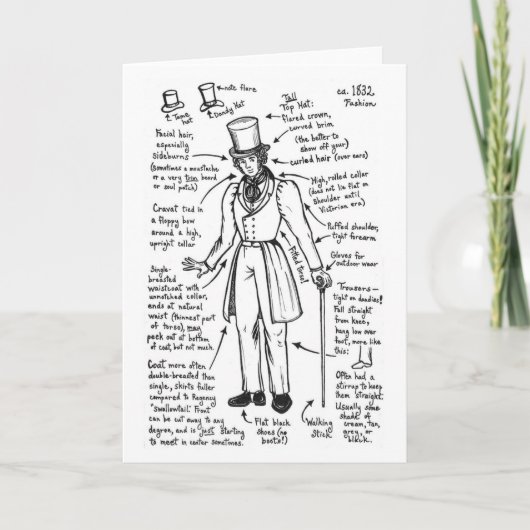 note flare
ca. 1832
Fashion
Tame
hat
Dandy Hat
Tall
Top Hat:
flared crown,
curved brim
(the better to
show off your)
curled hair (over ears)
Facial hair,
especially
sideburns
(sometimes a moustache
or a very trim beard
or soul patch)
High, rolled collar
(does not lie flat on
shoulder until
Victorian era)
Cravat tied in
a floppy bow
around a high,
upright collar
Puffed shoulder,
tight forearm
Fitted torso!
Gloves for
outdoor wear
Single-
breasted
waistcoat with
unnotched collar,
ends at natural
waist (thinnest part
of torso), may
peek out at bottom
of coat, but not much.
Trousers—
tight on doodies!
Fall straight
from knee,
hang low over
foot, more like
this:
Coat more often
double-breasted than
single, skirts fuller
compared to Regency
"swallowtail." Front
can be cut away to any
degree, and is just starting
to meet in center sometimes.
Often had a
stirrup to keep
them straight.
Usually some
shade of
cream, tan,
grey, or
black.
Flat black
shoes (no
boots!)
Walking
Stick